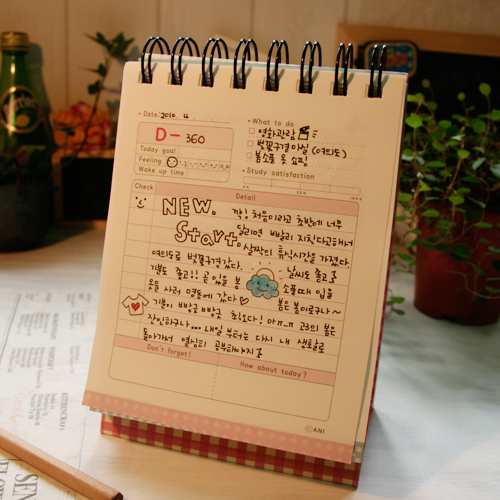 Date 2010. 4
What to do
D-360
영화관람
벚꽃구경 마실 (여의도)
봄소풍 옷 쇼핑
Today goal
Feeling
Wake up time
Study satisfaction
0%
50%
100%
Check
Detail
NEW. 처음이라고 초반에 너무
Start. 달리면 빨리 지친다고해서
살짝의 휴식시간을 가졌다.
여의도로 벚꽃구경갔다. 날씨도 좋고
기분도 좋고!! 곧 있을 봄 소풍때 입을
옷을 사러 명동에 갔다 ♡ 봄은 봄이로구나~
기분이 빠방콕 빠방콕 최고다! 아ㅠㅠ 고3의 봄은
잔인하구나... 내일 부터는 다시 내 생활로
돌아가서 열심히 공부해야지
Don't forget!
How about today?
©ANI